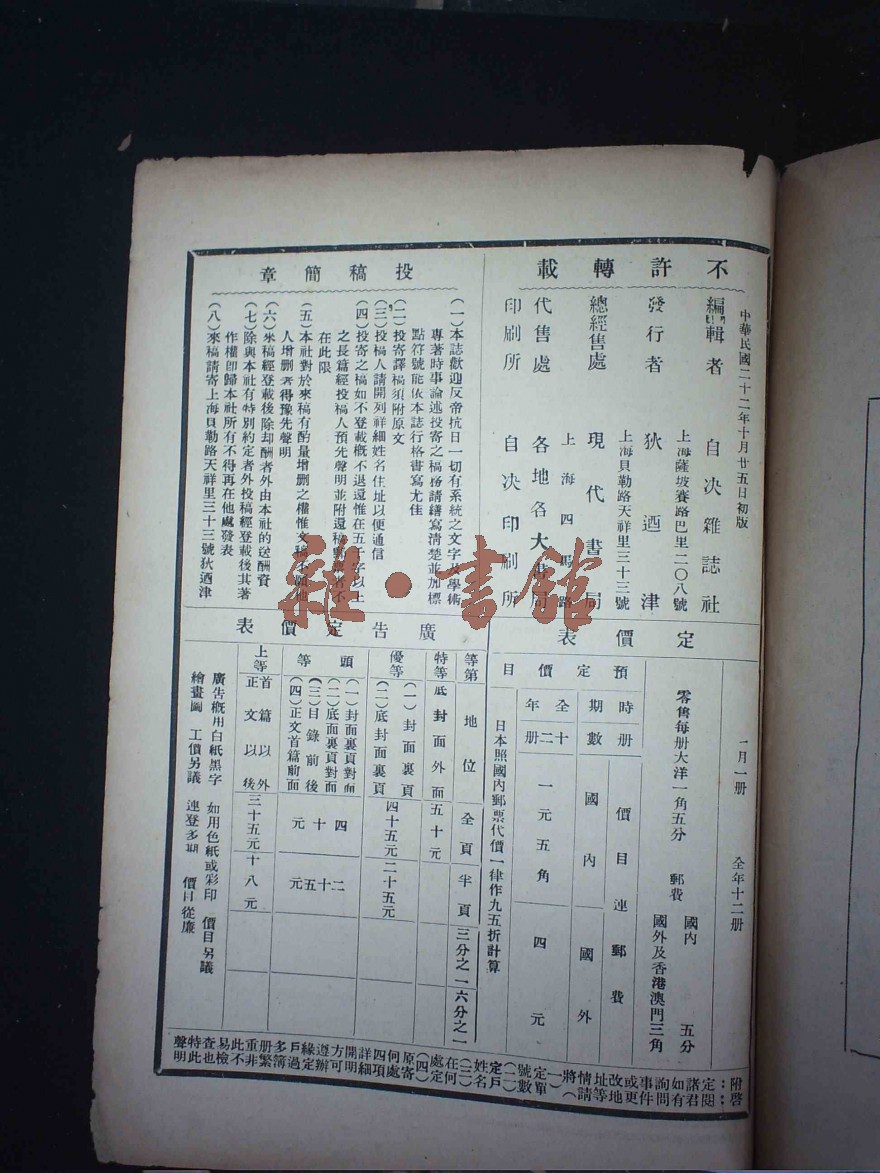 中華民國二十二年十月廿五日初版
不許轉載
編輯者　自決雜誌社
上海薩坡賽路巴里二〇八號
發行者　狄迺津
上海貝勒路天祥里三十三號
總經售處　現代書局
上海四馬路
代售處　各地各大書局
印刷所　自決印刷所
投稿簡章
（一）本誌歡迎反帝抗日一切有系統之文字及學術
專著時事論述投寄之稿務請繕寫清楚並加標
點符號能依本誌行格書寫尤佳
（二）投寄譯稿須附原文
（三）投稿人請開列詳細姓名住址以便通信
（四）投寄之稿如不登載概不退還惟在五千字以上
之長篇經投稿人預先聲明並附還稿郵資者不
在此限
（五）本社對於來稿有酌量增刪之權惟文稿不願他
人增刪者得豫先聲明
（六）來稿經登載後除却酬者外由本社酌送酬資
（七）除與本社有特別約定者外投稿經登載後其著
作權卽歸本社所有不得再在他處發表
（八）來稿請寄上海貝勒路天祥里三十三號狄迺津
定價表
一月一册　全年十二册
零售每册大洋一角五分　郵費　國內　五分
國外及香港澳門三角
預定價目
時期　册數　價目連郵費
國內　國外
全年　十二册　一元五角　四元
日本照國內郵票代價一律作九五折計算
廣告定價表
等第　地位　全頁　半頁　三分之一　六分之一
特等　底封面外面　五十元
優等　（一）封面裏頁　四十五元　二十五元
（二）底封面裏頁
頭等　（一）封面裏頁對面　四十元　二十五元
（二）底面裏頁對面
（三）目錄前後
（四）正文首篇前面
上等　首篇以外　三十五元　十八元
正文以後
廣告概用白紙黑字　如用色紙或彩印　價目另議
繪畫圖　工價另議　連登多期　價目從廉
附啓：定閱諸君如有詢問事件或更改地址等情請將（一）定單號數（二）定戶姓名（三）在何處定（四）原寄何處四項詳細開明方可遵辦緣定戶過多簿册繁重非此不易檢查也特此聲明
雜·書館